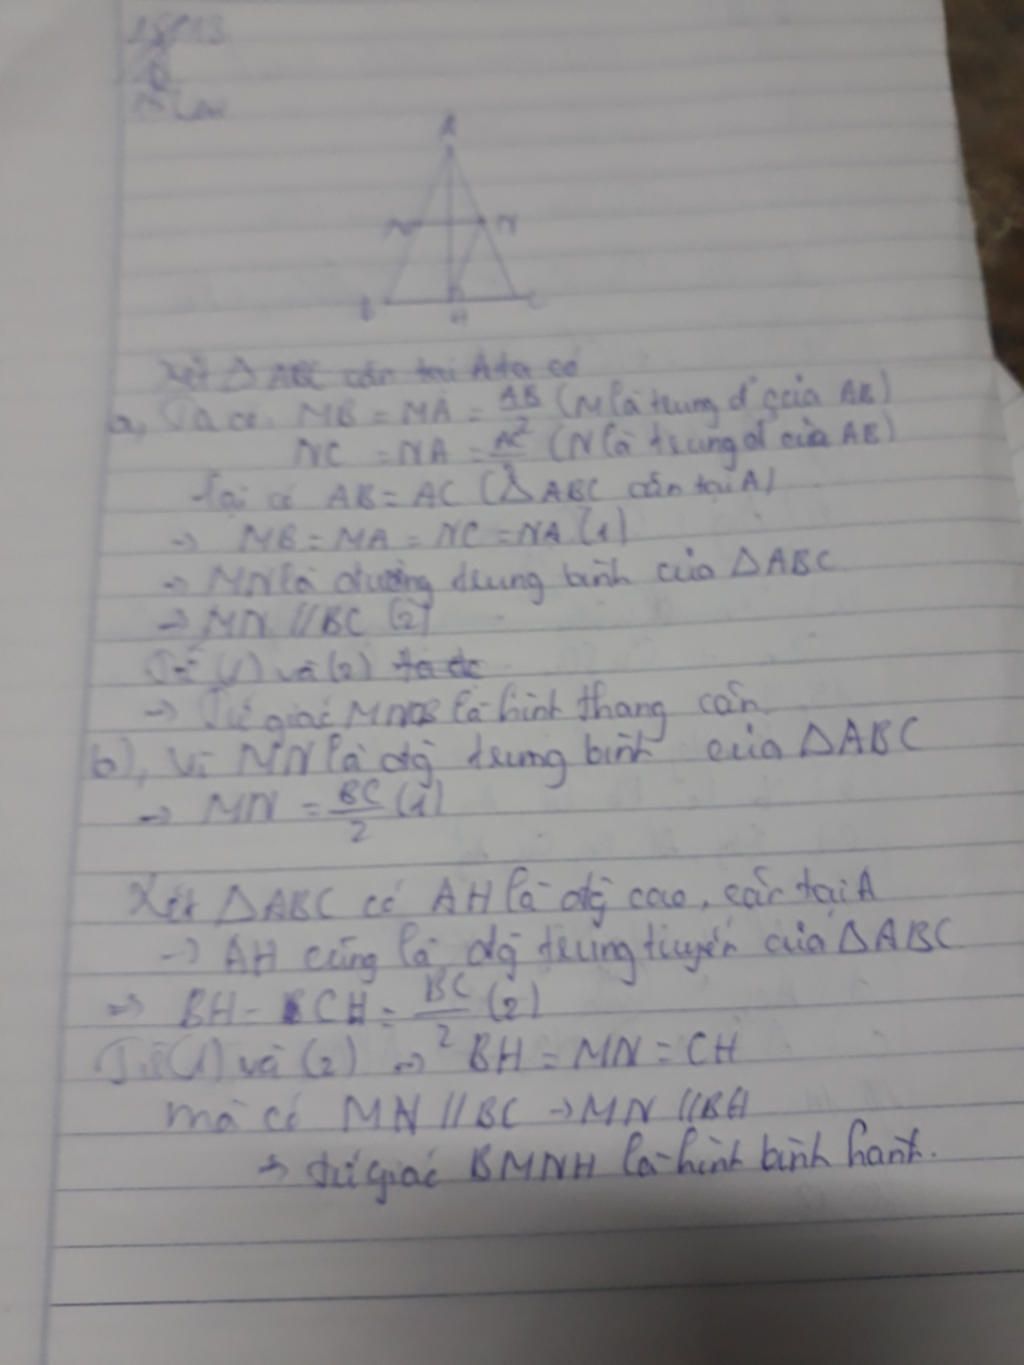 A
N
B
H
C
Xét ΔABC cân tại A ta có
a, Ta có. MB = MA = AB/2 (M là trung đ' của AB)
NC = NA = AC/2 (N là trung đ' của AB)
Lại có AB = AC (ΔABC cân tại A)
→ MB = MA = NC = NA (1)
→ MN là đường trung bình của ΔABC
→ MN // BC (2)
Từ (1) và (2) ta đc
→ Tứ giác là hình thang cân
b), Vì MN là đg trung bình của ΔABC
→ MN = BC/2 (1)
Xét ΔABC có AH là đg cao, cân tại A
→ AH cũng là đg trung tuyến của ΔABC
→ BH = CH = BC/2 (2)
Từ (1) và (2) → BH = MN = CH
mà có MN // BC → MN // BH
→ tứ giác BMNH là hình bình hành.